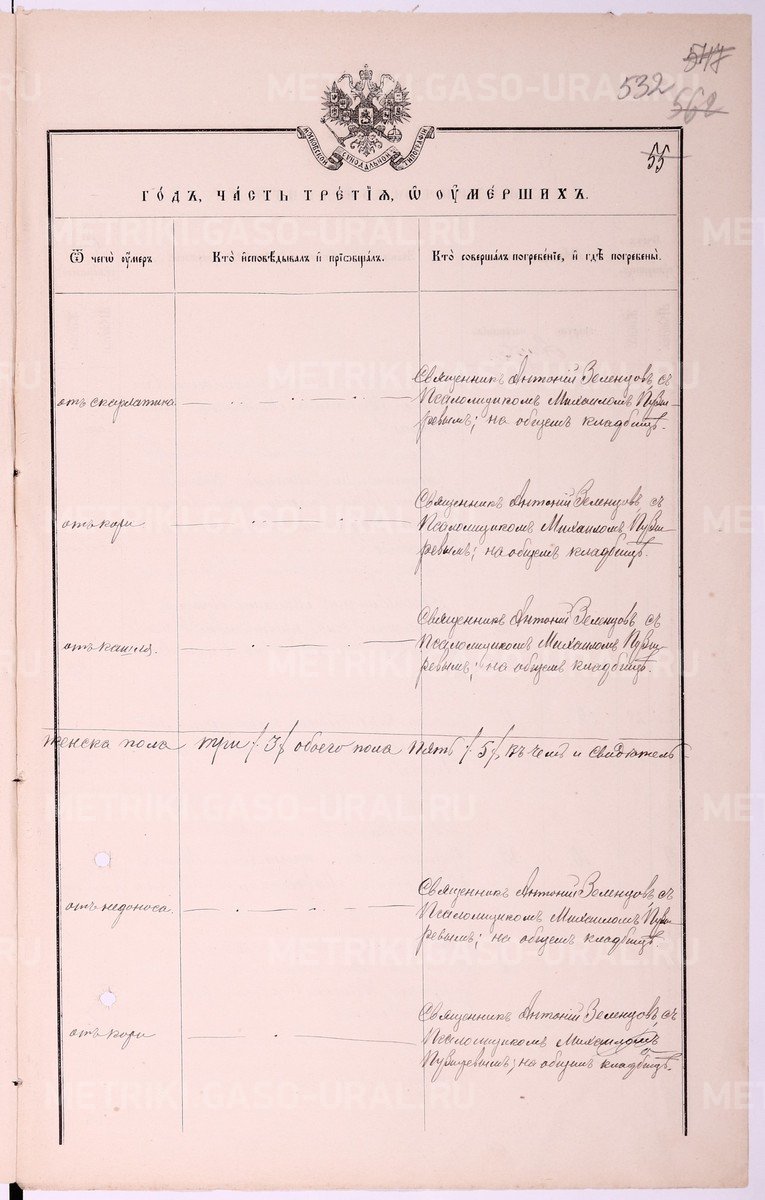 547
532
562
55
МОСКОВСКОЙ СѴНОДАЛЬНОЙ ТИПОГРАФІИ
ГО́ДЪ, ЧА́СТЬ ТРЕ́ТІѦ, Ѡ҆ ОУ҆МЕ́РШИХЪ.
Ѿ чегѡ̀ оу҆́меръ
Кто̀ и҆сповѣ́дывалъ и҆ прїѡбща́лъ.
Кто̀ соверша́лъ погребе́нїе, и҆ гдѣ̀ погребены̀.
отъ скарлатина
Священникъ Антоній Зеленцовъ, съ
Псаломщикомъ Михаиломъ Пузы-
ревымъ; на общемъ кладбищѣ.
отъ кори
Священникъ Антоній Зеленцовъ съ
Псаломщикомъ Михаиломъ Пузы-
ревымъ; на общемъ кладбищѣ.
отъ кашля.
Священникъ Антоній Зеленцовъ съ
Псаломщикомъ Михаиломъ Пузы-
ревымъ; на общемъ кладбищѣ.
женска пола три /3/ обоего пола пять /5/, въ чемъ и свидѣтель-
отъ недоноса.
Священникъ Антоній Зеленцовъ, съ
Псаломщикомъ Михаиломъ Пузы-
ревымъ; на общемъ кладбищѣ.
отъ кори
Священникъ Антоній Зеленцовъ, съ
Псаломщикомъ Михаиломъ
Пузыревымъ; на общемъ кладбищѣ.
METRIKI.GASO-URAL.RU